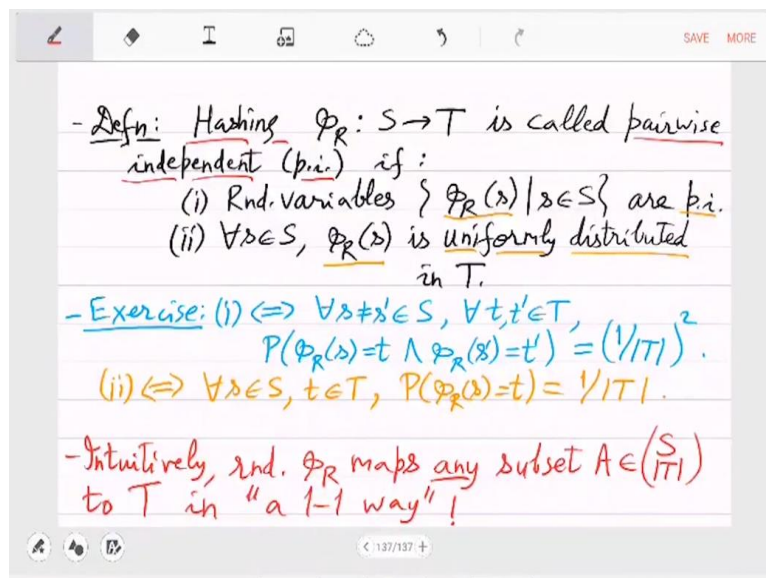 SAVE MORE
- Defn: Hashing φ_R: S→T is called pairwise
independent (p.i.) if :
(i) Rnd. variables { φ_R(s) | s∈S} are p.i.
(ii) ∀s∈S, φ_R(s) is uniformly distributed
in T.
- Exercise: (i) <=> ∀s≠s'∈S, ∀t,t'∈T,
P(φ_R(s)=t ∧ φ_R(s')=t') = (1/|T|)².
(ii) <=> ∀s∈S, t∈T, P(φ_R(s)=t) = 1/|T|.
- Intuitively, rnd. φ_R maps any subset A∈(S |T|)
to T in "a 1-1 way"!
< 137/137 +